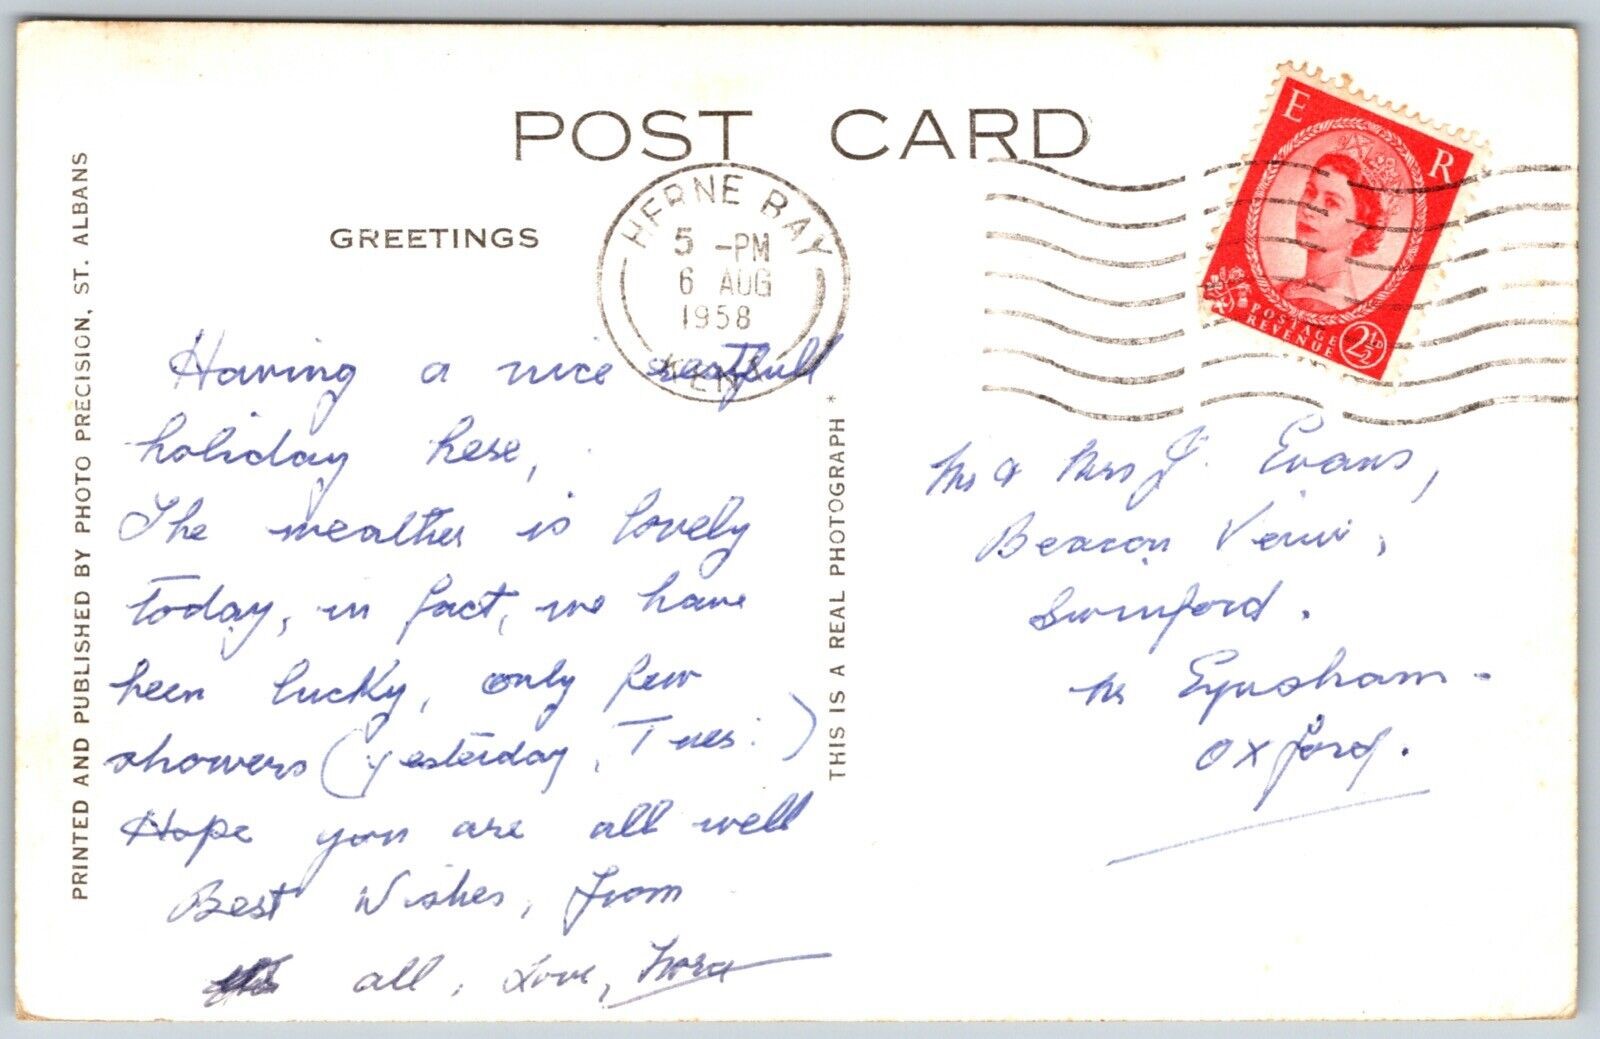 POST CARD
GREETINGS
HERNE BAY
5 - PM
6 AUG
1958
KENT
E R
POSTAGE
REVENUE
2½D
Having a nice restfull
holiday here,
The weather is lovely
today, in fact, we have
been lucky, only few
showers (yesterday, Tues:)
Hope you are all well
Best Wishes, from
all, Love, Nora
Mr & Mrs J. Evans,
Beacon View,
Swinford.
Nr Eynsham.
Oxford.
PRINTED AND PUBLISHED BY PHOTO PRECISION, ST. ALBANS
THIS IS A REAL PHOTOGRAPH *